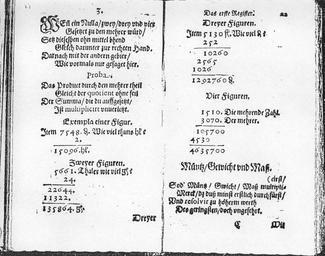 3.
Weil ein Nulla/ zwey/ drey und vier
Gesetzt zu den mehrer würd/
Setz dieselben ohn mittel hand
Gleich darunter zur rechten Hand.
Darnach mit der andern gebier/
Wie vormals mit gesaget hier.
Proba.
Das Product durch den mehrer theil
Gleicht der quotient ohne feil
Der Summa/ die du auffgesetzt/
Ist multiplicirt unverletzt.
Exempla einer Figur.
Item 7548. Wie viel thuns
2
15096.
Zweyer Figuren.
5661. Thaler wie viel
24.
22644.
11322.
135864.
Dreyer
Das erste Register.
22
Dreyer Figuren.
Item 5130 ft. Wie viel
252
10260
2565
1026
1292760
Vier Figuren.
1510. Die mehrende Zahl.
3070. Der mehrer.
105700
4530
4635700
Müntz/ Gewicht und Maß.
So d' Müntz/ Gwicht/ Maß multipli-
(cirst/
Merck/ dz duß minst erstlich durchfürst/
Und resolvir zu höherm werth
Des geringsten/ doch ungesehrt.
C
Wil